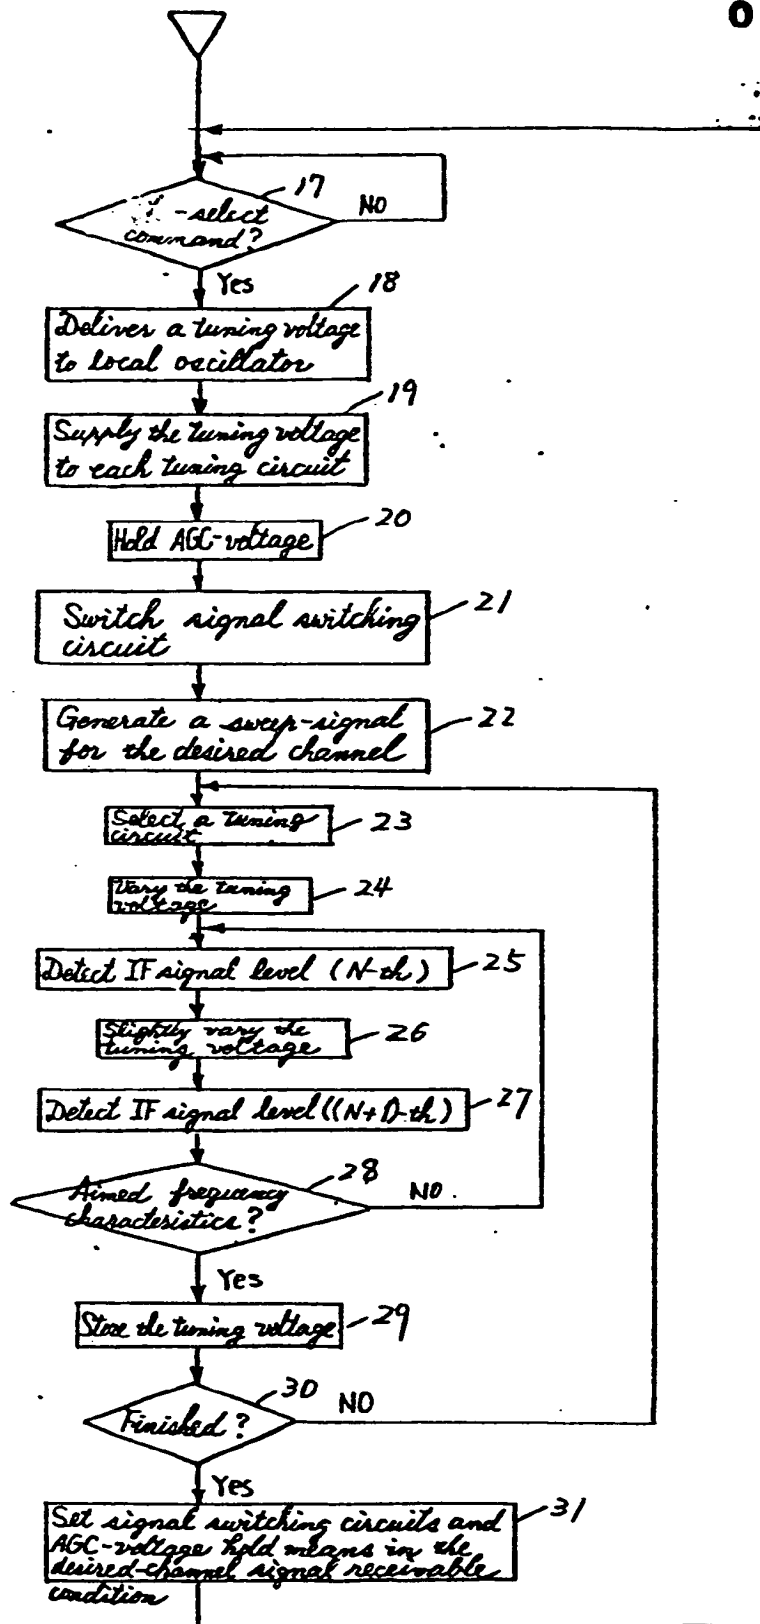 0
17
-select
command?
NO
Yes
18
Deliver a tuning voltage
to local oscillator
19
Supply the tuning voltage
to each tuning circuit
20
Hold AGC-voltage
21
Switch signal switching
circuit
22
Generate a sweep-signal
for the desired channel
23
Select a tuning
circuit
24
Vary the tuning
voltage
25
Detect IF signal level (N-th)
26
Slightly vary the
tuning voltage
27
Detect IF signal level ((N+1)-th)
28
Aimed frequency
characteristics?
NO
Yes
29
Store the tuning voltage
30
Finished?
NO
Yes
31
Set signal switching circuits and
AGC-voltage hold means in the
desired-channel signal receivable
condition